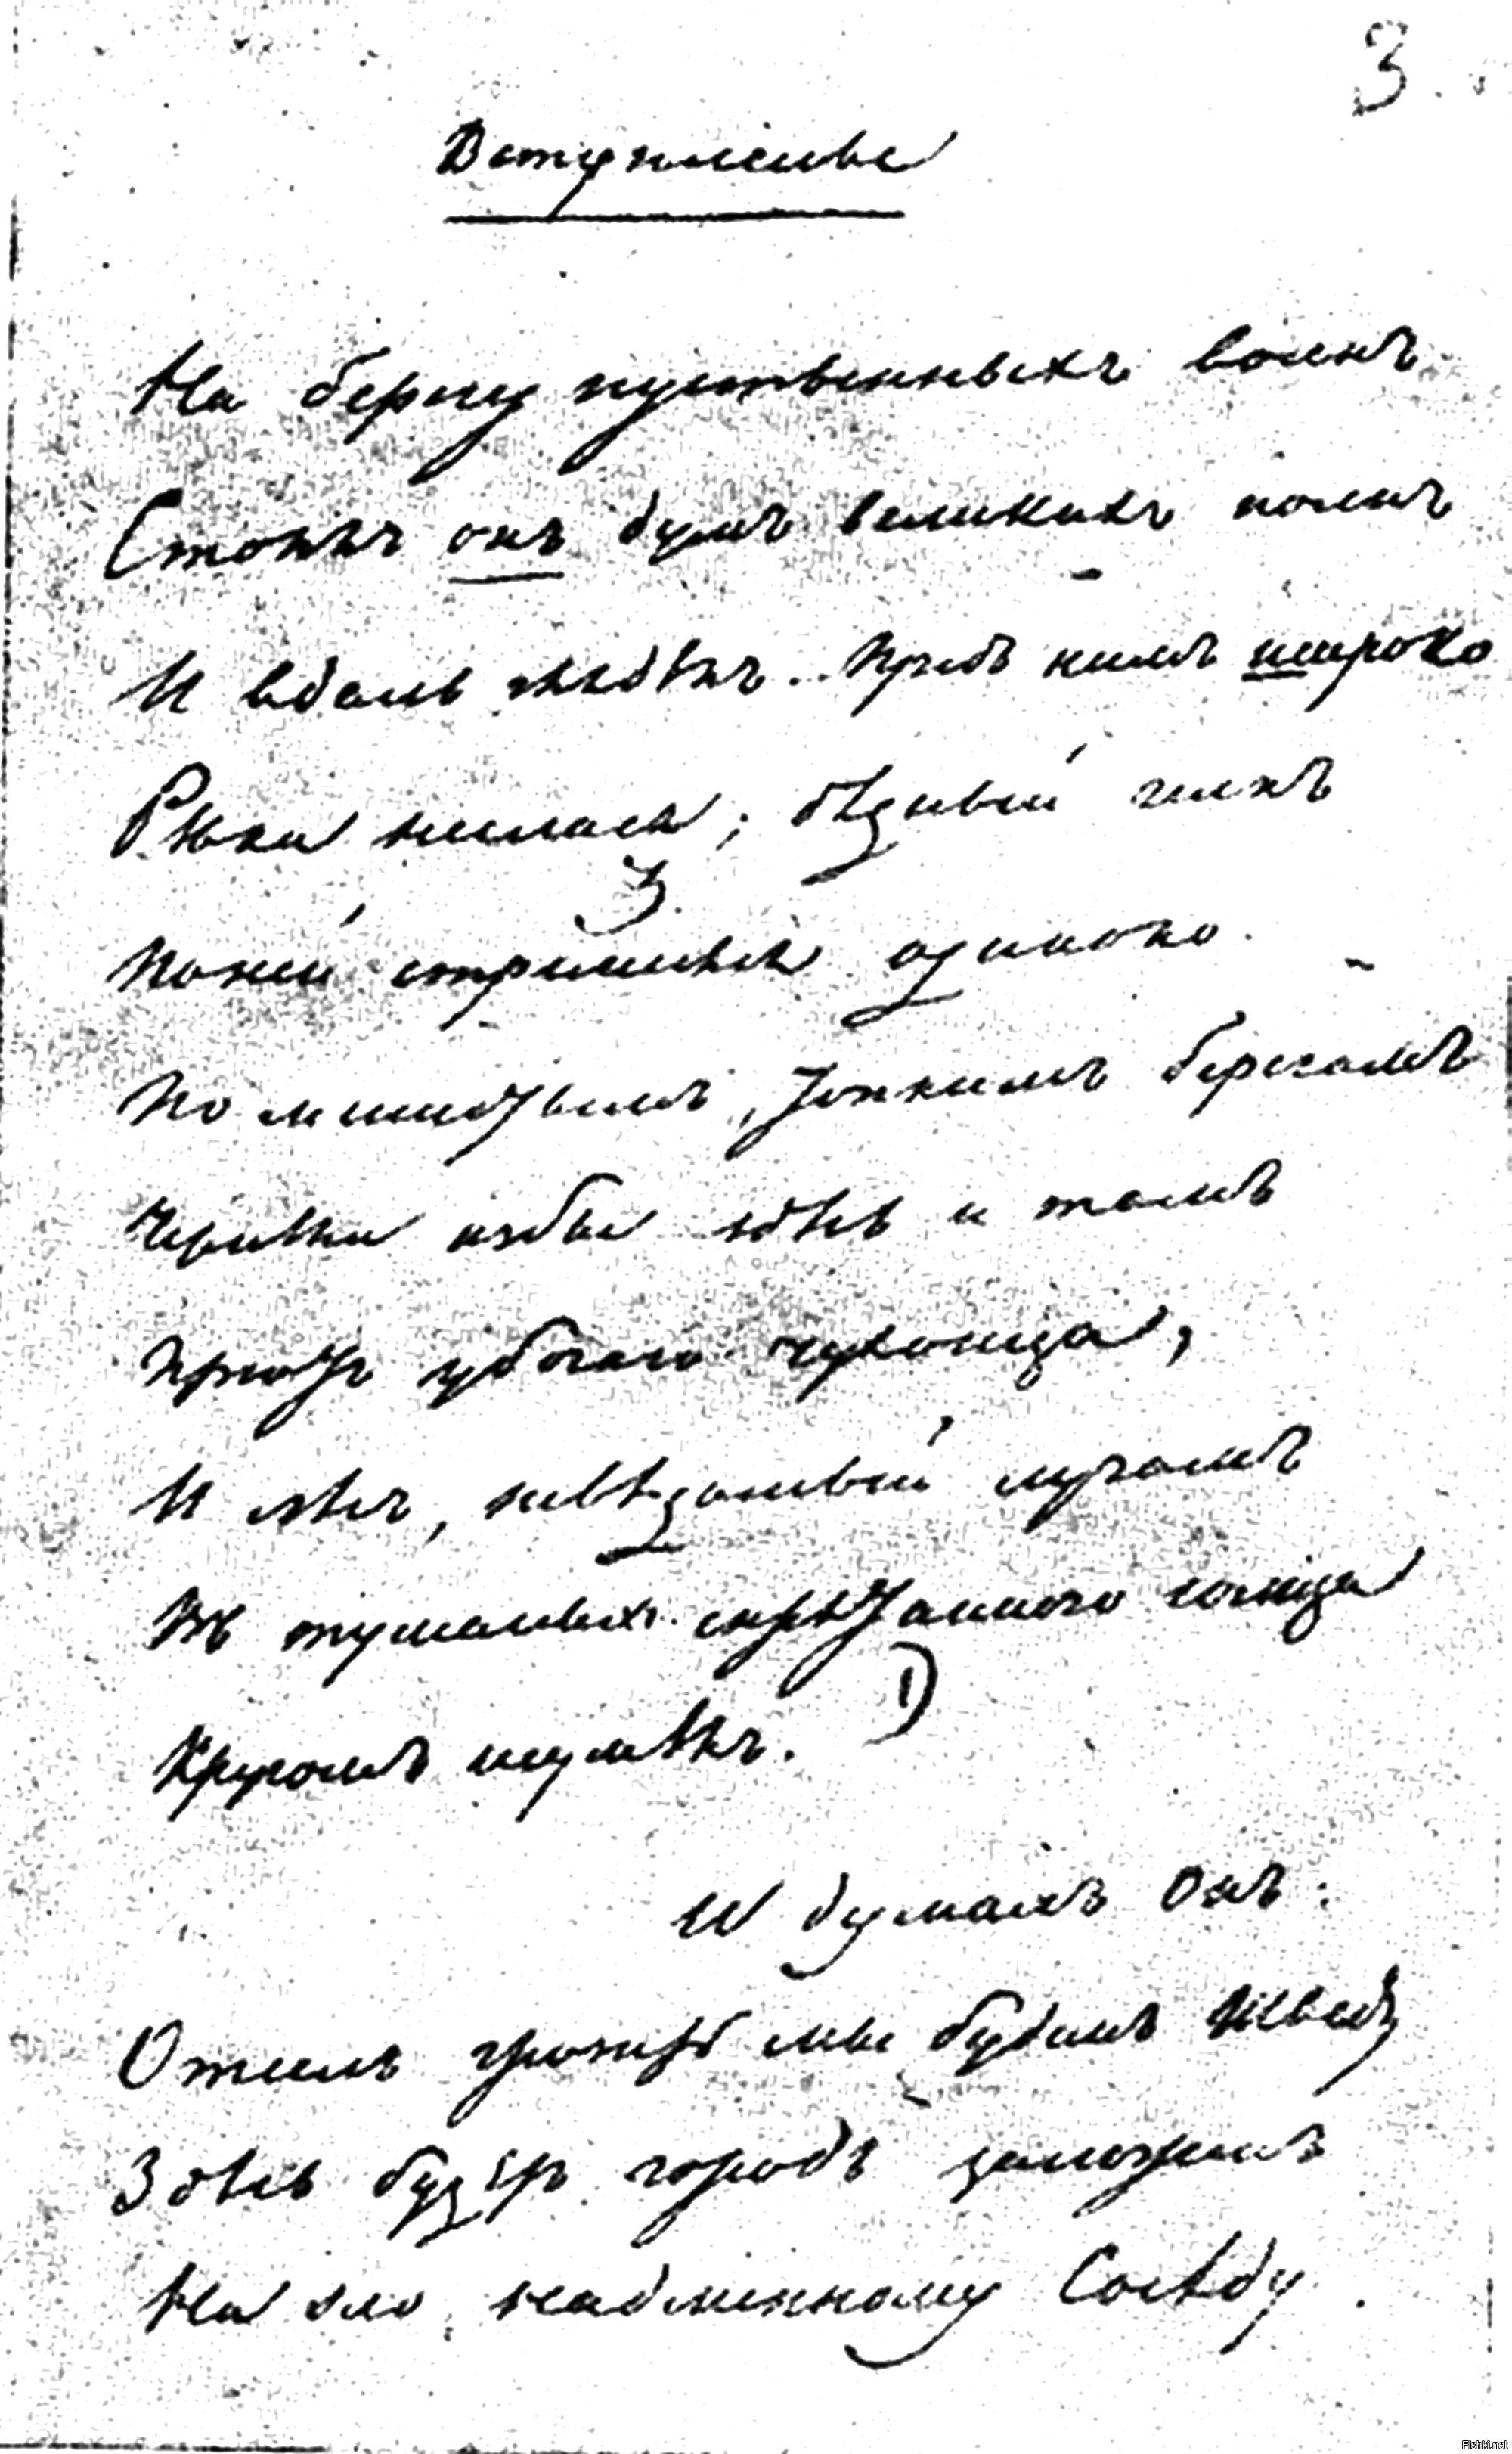 3.
Вступленье
На берегу пустынныхъ волнъ
Стоялъ онъ думъ великихъ полнъ
И вдаль глядѣлъ.. Предъ нимъ широко
Рѣка неслася; бѣдный челнъ
3.
По ней стремился одиноко.
По мшистымъ, топкимъ берегамъ
Чернѣли избы здѣсь и тамъ
Пріютъ убогаго чухонца,
И лѣсъ, невѣдомый лучамъ
Въ туманѣ спрятаннаго солнца
1)
Кругомъ шумѣлъ.
И думалъ Онъ:
Отсель грозить мы будемъ Шведу
Здѣсь будетъ городъ заложенъ
На зло надменному Сосѣду.
Fishki.net